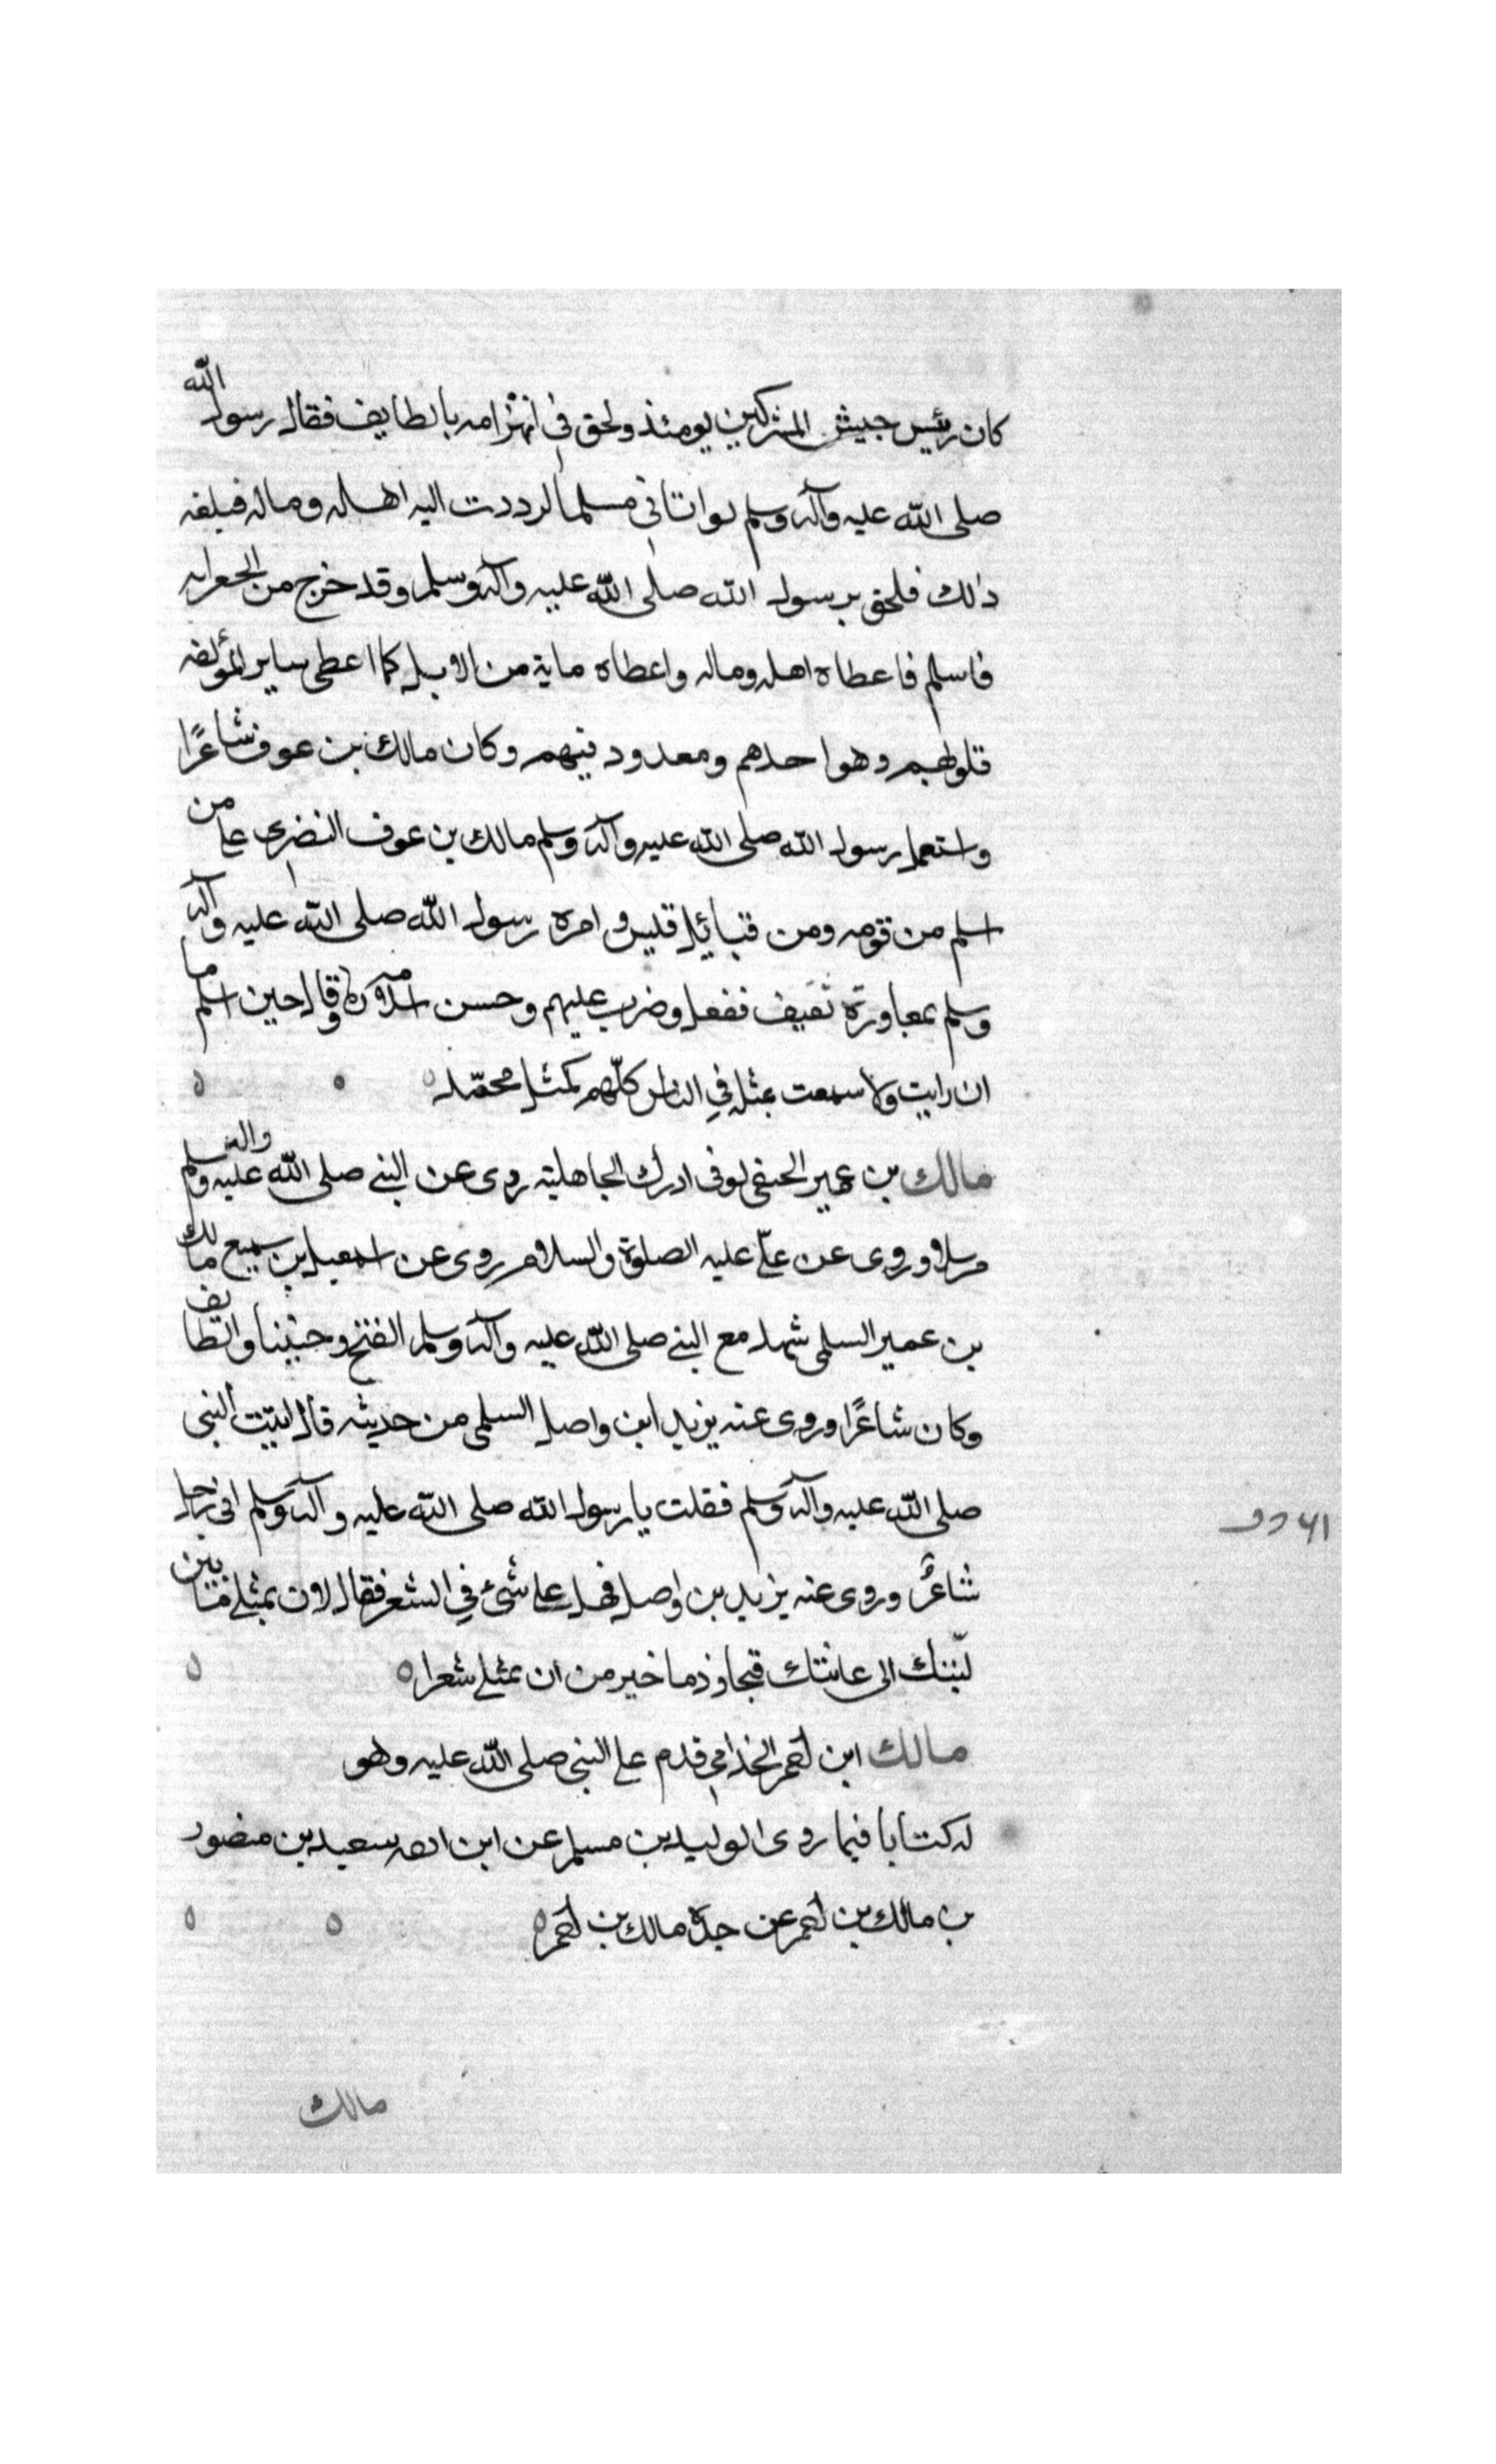 كان رئيس جيش المشركين يومئذ ولحق في انهزامه بالطايف فقال رسول الله
صلى الله عليه وآله وسلم لو اتاني مسلما لرددت اليه اهله وماله فبلغه
ذلك فلحق برسول الله صلى الله عليه وآله وسلم وقد خرج من الجعرانه
فاسلم فاعطاه اهله وماله واعطاه ماية من الابل كما اعطى ساير المؤلفه
قلوبهم وهو احدهم ومعدود فيهم وكان مالك بن عوف شاعرًا
واستعمل رسول الله صلى الله عليه وآله وسلم مالك بن عوف النضرى على من
اسلم من قومه ومن قبائل قيس وامره رسول الله صلى الله عليه وآله
وسلم بمعاورة ثقيف ففعل وضرب عليهم وحسن اسلامه وقال حين اسلم ما
ان رايت ولا سمعت بمثله في الناس كلّهم كمثل محمّد
مالك بن عمير الحنفى لوفى ادرك الجاهلية روى عن النبي صلى الله عليه واله وسلم
مرسلا وروى عن علىّ عليه الصلوة والسلام روى عن اسمعيل بن سميع مالك
بن عمير السلمى شهد مع النبي صلى الله عليه وآله وسلم الفتح وحنينا والطايف
وكان شاعرًا وروى عنه يزيد ابن واصل السلمى من حديثه قال اتيت النبى
صلى الله عليه وآله وسلم فقلت يا رسول الله صلى الله عليه وآله وسلم انى رجل
شاعرٌ وروى عنه يزيد بن واصل فهل على شىء في الشعر فقال لان بمثلى ما بين
لبّتك الى عانتك خير من ان بمثلى شعرا
مالك ابن احمر الجذامى قدم على النبى صلى الله عليه وهو
له كتابا فيما روى الوليد بن مسلم عن ابن سعيد بن منصور
بن مالك بن احمر عن جده مالك بن احمر
مالك